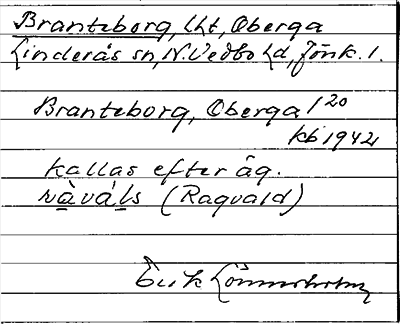 Brantzborg, lht, Oberga
Linderås sn, N. Vedbo hd, Jönk. l.
Brantzborg, Oberga 1²⁰
kb 1942
kallas efter äg.
ràvá̀ls (Raqvald)
Erik Lönnerholm